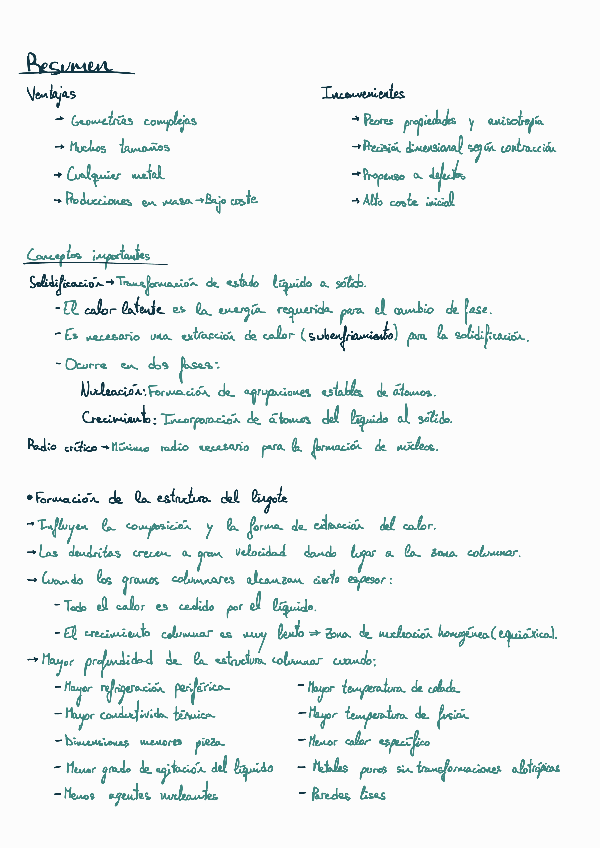 Resumen
Ventajas
→ Geometrías complejas
→ Muchos tamaños
→ Cualquier metal
→ Producciones en masa → Bajo coste
Inconvenientes
→ Peores propiedades y anisotropía
→ Precisión dimensional según contracción
→ Propenso a defectos
→ Alto coste inicial
Conceptos importantes
Solidificación → Transformación de estado líquido a sólido.
- El calor latente es la energía requerida para el cambio de fase.
- Es necesario una extracción de calor (subenfriamiento) para la solidificación.
- Ocurre en dos fases:
Nucleación: Formación de agrupaciones estables de átomos.
Crecimiento: Incorporación de átomos del líquido al sólido.
Radio crítico → Mínimo radio necesario para la formación de núcleos.
• Formación de la estructura del lingote
→ Influyen la composición y la forma de extracción del calor.
→ Las dendritas crecen a gran velocidad dando lugar a la zona columnar.
→ Cuando los granos columnares alcanzan cierto espesor:
- Todo el calor es cedido por el líquido.
- El crecimiento columnar es muy lento ⇒ Zona de nucleación homogénea (equiáxica).
→ Mayor profundidad de la estructura columnar cuando:
- Mayor refrigeración periférica
- Mayor conductivida térmica
- Dimensiones menores pieza
- Menor grado de agitación del líquido
- Menos agentes nucleantes
- Mayor temperatura de colada
- Mayor temperatura de fusión
- Menor calor específico
- Metales puros sin transformaciones alotrópicas
- Paredes lisas